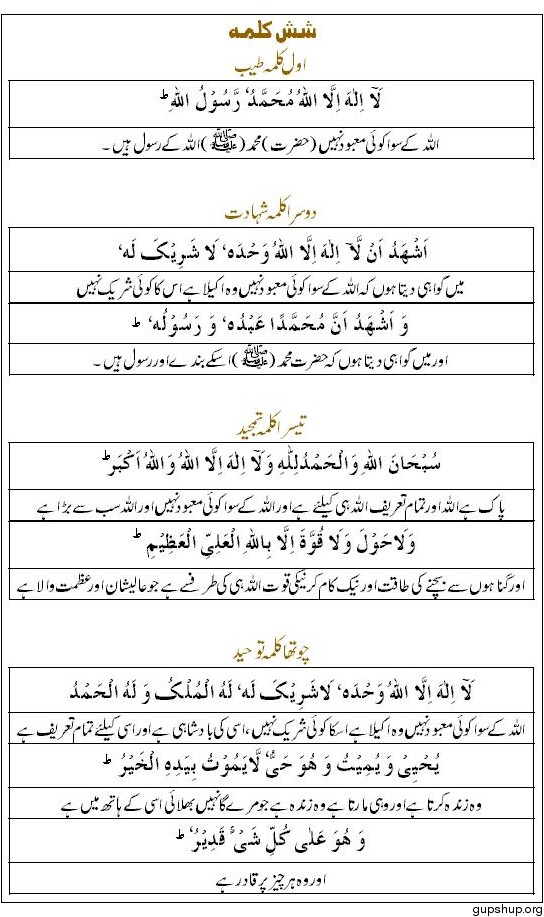 شش کلمہ
اول کلمہ طیب
لَآ اِلٰهَ اِلَّا اللهُ مُحَمَّدٌ رَّسُوْلُ اللهِ ؕ
اللہ کے سوا کوئی معبود نہیں (حضرت) محمد (ﷺ) اللہ کے رسول ہیں ۔
دوسرا کلمہ شہادت
اَشْهَدُ اَنْ لَّآ اِلٰهَ اِلَّا اللهُ وَحْدَهٗ لَا شَرِيْكَ لَهٗ
میں گواہی دیتا ہوں کہ اللہ کے سوا کوئی معبود نہیں وہ اکیلا ہے اس کا کوئی شریک نہیں
وَ اَشْهَدُ اَنَّ مُحَمَّدًا عَبْدُهٗ وَ رَسُوْلُهٗ ؕ
اور میں گواہی دیتا ہوں کہ حضرت محمد (ﷺ) اسکے بندے اور رسول ہیں ۔
تیسرا کلمہ تمجید
سُبْحَانَ اللهِ وَالْحَمْدُ لِلّٰهِ وَلَآ اِلٰهَ اِلَّا اللهُ وَاللهُ اَكْبَر ؕ
پاک ہے اللہ اور تمام تعریف اللہ ہی کیلئے ہے اور اللہ کے سوا کوئی معبود نہیں اور اللہ سب سے بڑا ہے
وَلَا حَوْلَ وَلَا قُوَّةَ اِلَّا بِاللهِ الْعَلِيِّ الْعَظِيْمِ ؕ
اور گناہوں سے بچنے کی طاقت اور نیک کام کرنیکی قوت اللہ ہی کی طرفسے ہے جو عالیشان اور عظمت والا ہے
چوتھا کلمہ توحید
لَآ اِلٰهَ اِلَّا اللهُ وَحْدَهٗ لَا شَرِيْكَ لَهٗ لَهُ الْمُلْكُ وَ لَهُ الْحَمْدُ
اللہ کے سوا کوئی معبود نہیں وہ اکیلا ہے اسکا کوئی شریک نہیں، اسی کی بادشاہی ہے اور اسی کیلئے تمام تعریف ہے
يُحْيِىْ وَ يُمِيْتُ وَ هُوَ حَىٌّ لَّا يَمُوْتُ بِيَدِهِ الْخَيْرُ ؕ
وہ زندہ کرتا ہے اور وہی مارتا ہے وہ زندہ ہے جو مرے گا نہیں بھلائی اسی کے ہاتھ میں ہے
وَ هُوَ عَلٰى كُلِّ شَىْءٍ قَدِيْرٌ ؕ
اور وہ ہر چیز پر قادر ہے
gupshup.org